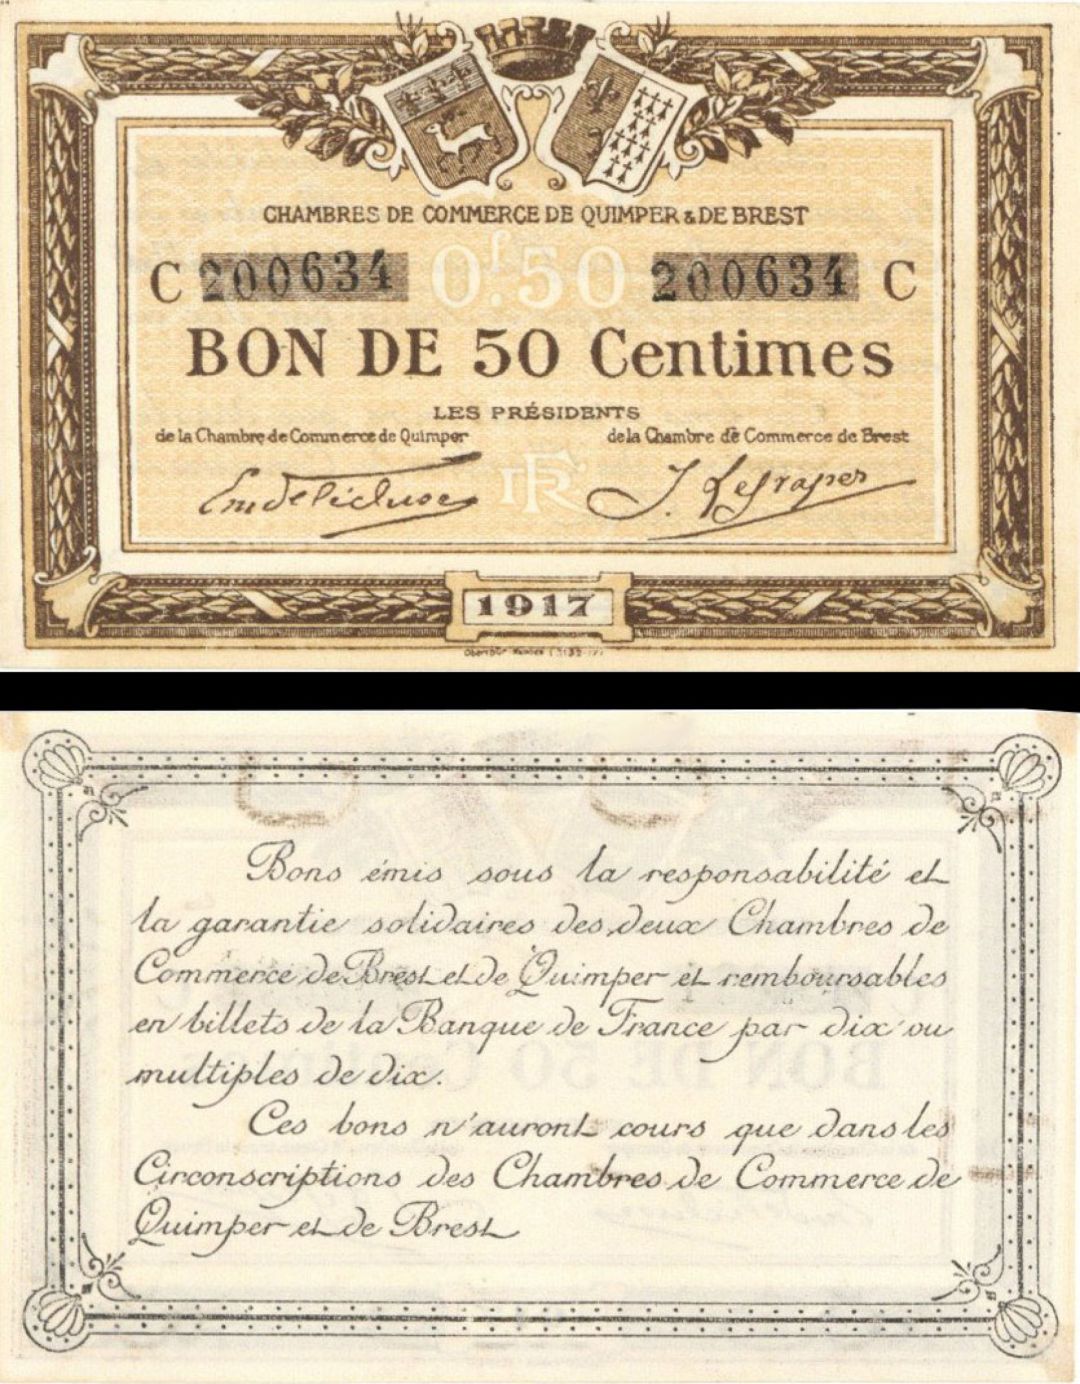 CHAMBRES DE COMMERCE DE QUIMPER & DE BREST
C 200634 0f.50 200634 C
BON DE 50 Centimes
LES PRÉSIDENTS
de la Chambre de Commerce de Quimper de la Chambre de Commerce de Brest
RF
1917
Oberthür Rennes
Bons émis sous la responsabilité et
la garantie solidaires des deux Chambres de
Commerce de Brest et de Quimper et remboursables
en billets de la Banque de France par dix ou
multiples de dix.
Ces bons n'auront cours que dans les
Circonscriptions des Chambres de Commerce de
Quimper et de Brest